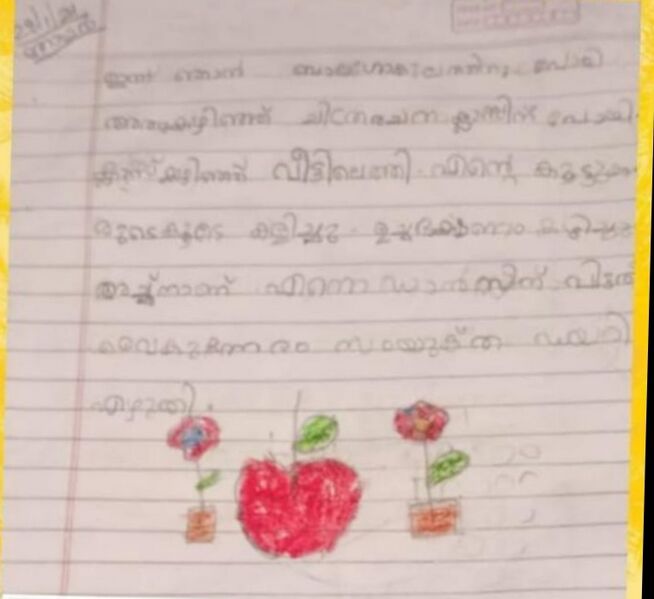 ഇന്ന് ഞാൻ ബാലഗോകുലത്തിനു പോയി
അതുകഴിഞ്ഞ് ചിത്രരചന ക്ലാസിന് പോയി.
ക്ലാസ് കഴിഞ്ഞ് വീട്ടിലെത്തി. എന്റെ കൂട്ടുകാ
രുടെകൂടെ കളിച്ചു. ഉച്ചഭക്ഷണം കഴിച്ചു
അച്ഛനാണ് എന്നെ ഡാൻസിന് വിട്ടത്
വൈകുന്നേരം സംയുക്ത ഡയറി
എഴുതി.